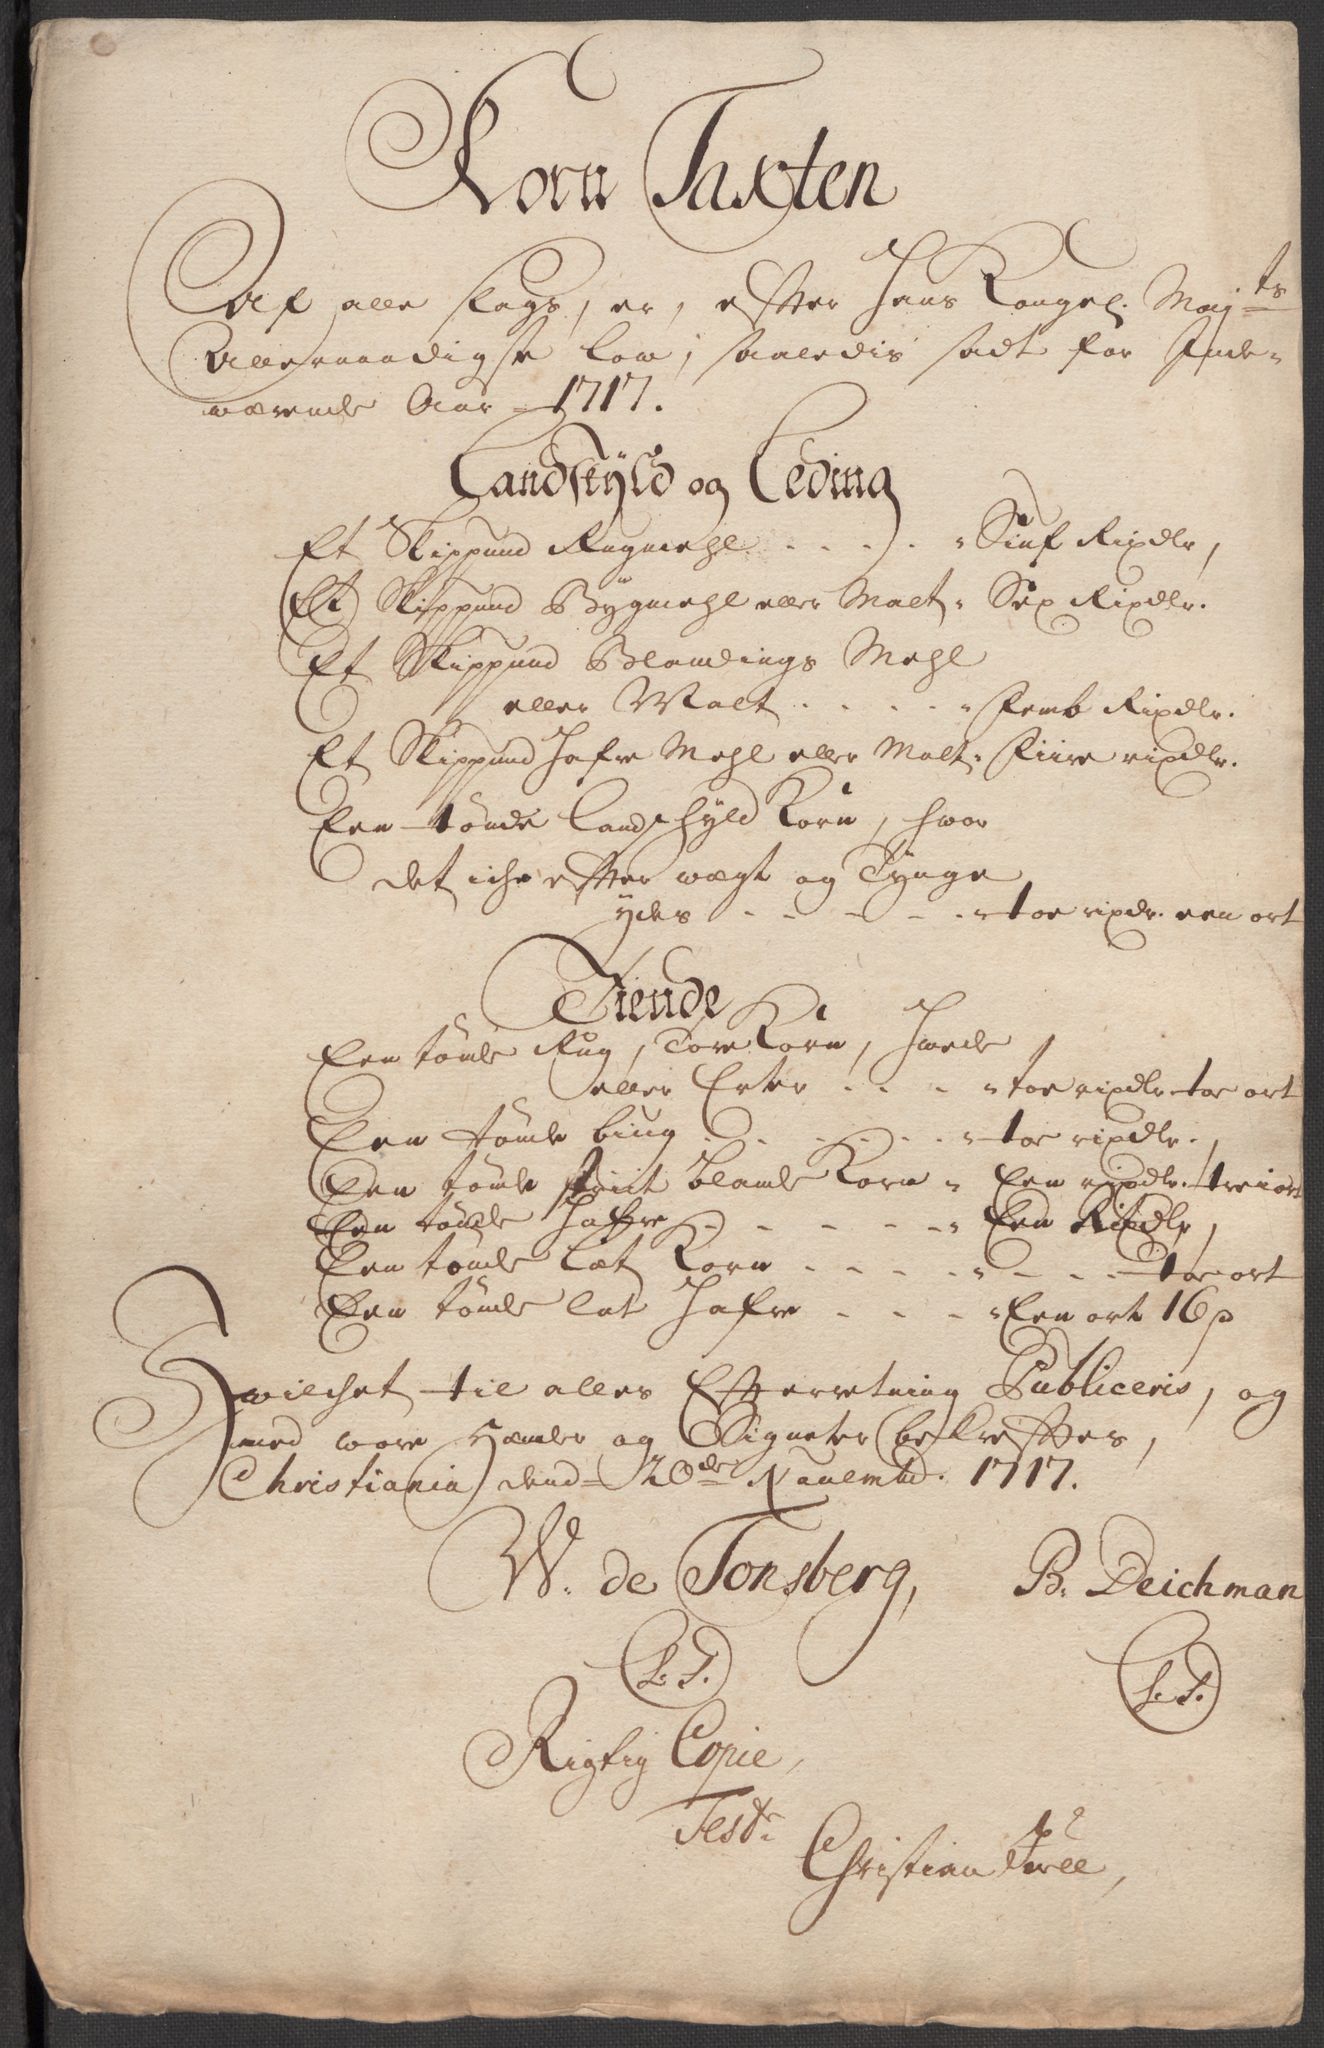 Korn Taxten
Af alle slags, er, efter Hans Kongel. Maj.ts
Allernaadigste low, saaledis sadt for Inde-
værende Aar 1717.
Landskyld og Leding
Et Skippund Rugmehl . . . . Siuf Rixdlr,
Et Skippund Bÿgmehl eller Malt. Sex Rixdlr.
Et Skippund Blandings Mehl
eller Malt . . . . . Femb Rixdlr.
Et Skippund Hafre Mehl eller Malt. Fiire rixdlr.
Een tönde Landschyld Korn, hvor
det iche efter wægt og Tÿnge
ÿdes - - - - - toe rixdr. een ort
Tiende
Een tönde Rug, Tore Korn, Hvede
eller Erter . . . toe rixdlr toe ort
Een tönde biug . . . . . . toe rixdlr.,
Een tönde friit blande Korn - Een rixdlr. tre ort
Een tönde Hafre - - - - - Een Rixdlr,
Een tönde læt Korn - - - - - - - toe ort
Een tönde let Hafre - - - Een ort 16 p
Hvilchet til alles Efterretning Publiceris, og
med vore Hænder og Signeter bekreftes,
Christiania dend 20de Nauembd. 1717.
W. de Tonsberg, B. Deichman
(L.S.) (L.S.)
Rigtig Copie,
Test.
Christian